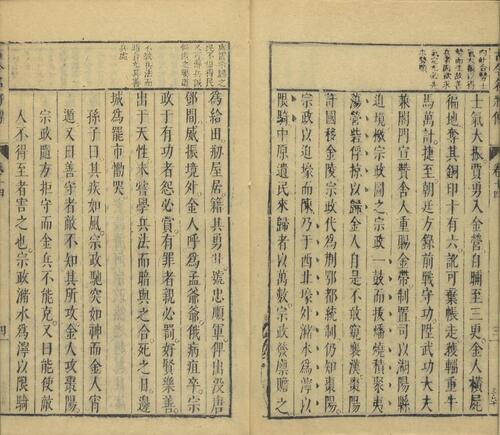 士氣大振賈勇入金營自晡至三更金人橫屍
徧地奪其銅印十有六訛可棄帳走獲輜重牛
馬萬計捷至朝廷方錄前戰守功陞武功大夫
兼閤門宣贊舍人重賜金帶制置司以湖陽縣
迫境檄宗政圖之宗政一鼓而拔燔燒積聚夷
蕩營砦俘掠以歸金人自是不敢窺襄漢棗陽
許國移金陵宗政代為荆鄂都統制仍知棗陽
宗政以迫壕而陳乃于西北壕外瀦水為濘以
限騎中原遺民來歸者以萬數宗政發廩贍之
為給田刱屋居籍其勇壯號忠順軍俾出没唐
鄧間威振境外金人呼為孟爺爺俄病疽卒宗
政于有功者怨必賞有罪者親必罰好賢樂善
出于天性未嘗學兵法而暗與之合死之日邊
城為罷市慟哭
孫子曰其疾如風宗政馳突如神而金人宵
遁又曰善守者敵不知其所攻金人攻棗陽
宗政隨方拒守而金兵不能克又曰能使敵
人不得至者害之也宗政瀦水為濘以限騎